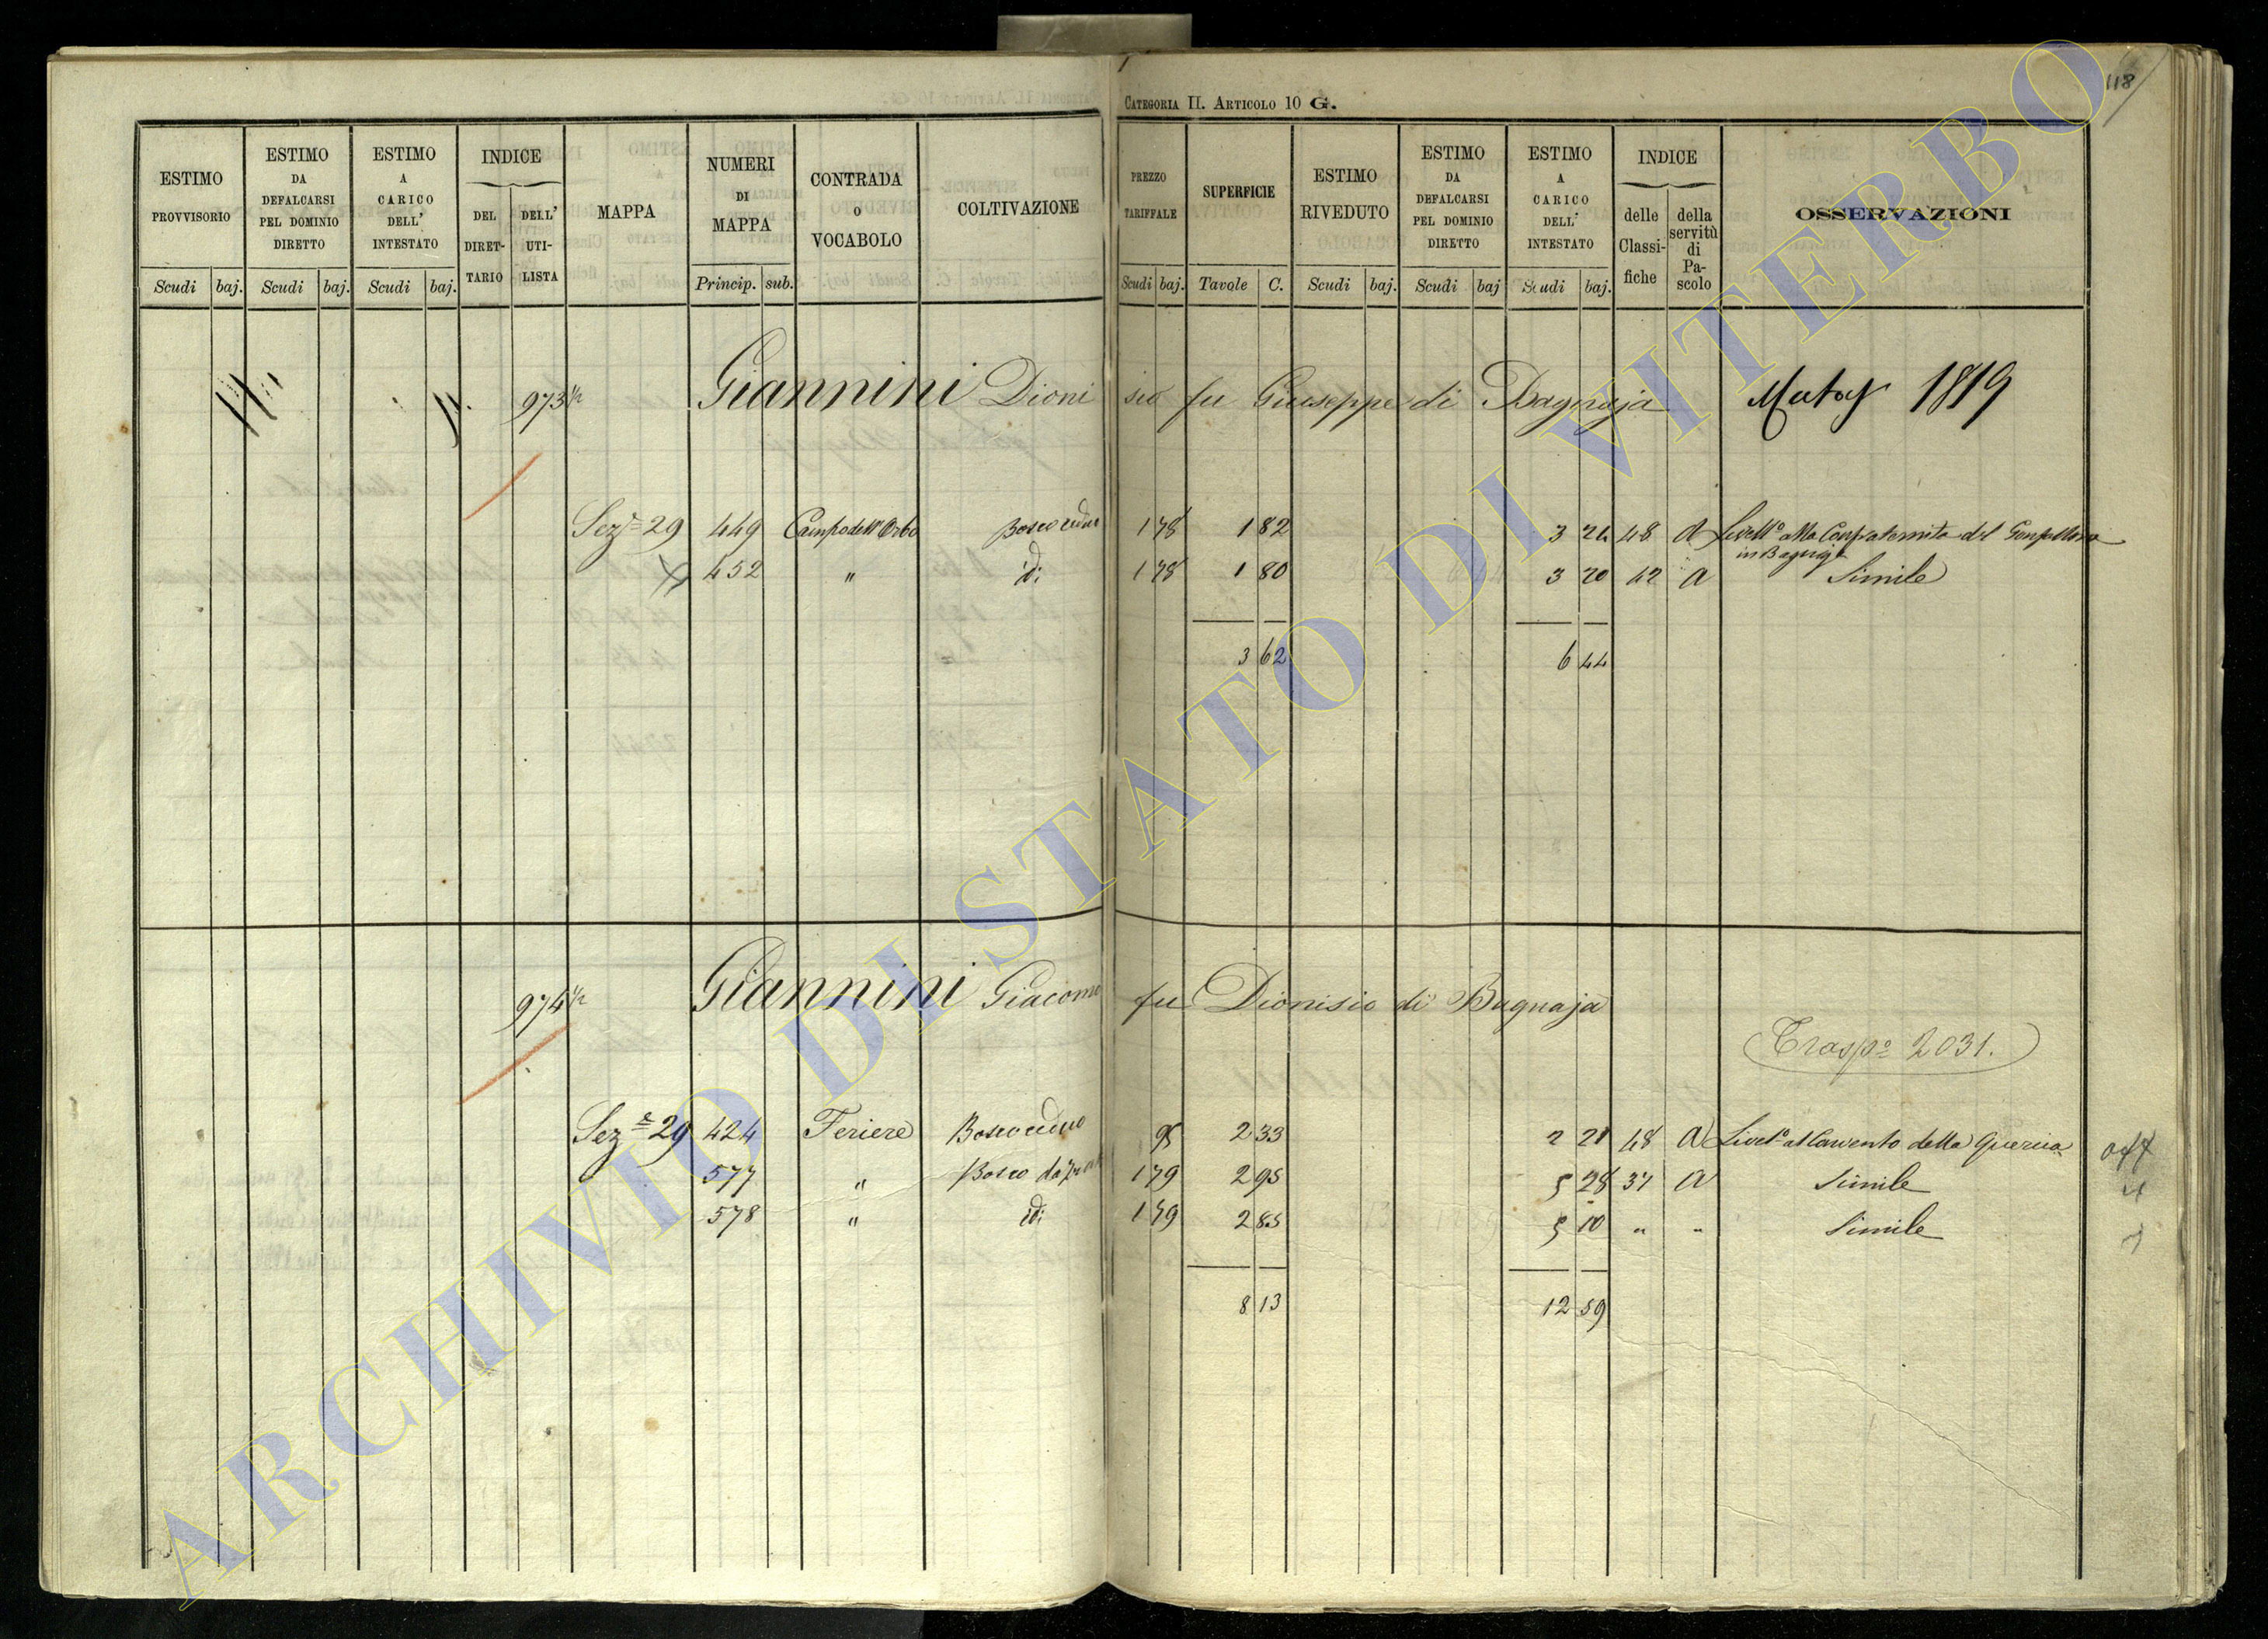 118
CATEGORIA II. ARTICOLO 10 G.
ESTIMO PROVVISORIO
ESTIMO DA DEFALCARSI PEL DOMINIO DIRETTO
ESTIMO A CARICO DELL' INTESTATO
INDICE
DEL DIRET-TARIO
DELL' UTI-LISTA
MAPPA
NUMERI DI MAPPA
CONTRADA O VOCABOLO
COLTIVAZIONE
PREZZO TARIFFALE
SUPERFICIE
ESTIMO RIVEDUTO
ESTIMO DA DEFALCARSI PEL DOMINIO DIRETTO
ESTIMO A CARICO DELL' INTESTATO
INDICE
delle Classi-fiche
della servitù di Pa-scolo
OSSERVAZIONI
Scudi baj. Scudi baj. Scudi baj. Princip. sub. Scudi baj. Tavole C. Scudi baj. Scudi baj Scudi baj.
973 1/2 Giannini Dionisio fu Giuseppe di Bagnaja 1819
Sez.e 29 449 Campo dell'Orbo Bosco ceduo 178 1 82 3 24 48 A Livell.o alla Confraternita del
in Bagnaja
452 " di 178 1 80 3 20 42 A Simile
3 62 6 44
974 1/2 Giannini Giacomo fu Dionisio di Bagnaja
Trasp.o 2031.
Sez.e 29 424 Feriere Bosco ceduo 95 2 33 2 21 48 A Livel.o al Convento della Quercia
577 " Bosco da 179 2 95 5 28 37 A Simile
578 " di 179 2 85 5 10 " " Simile
8 13 12 59
ARCHIVIO DI STATO DI VITERBO